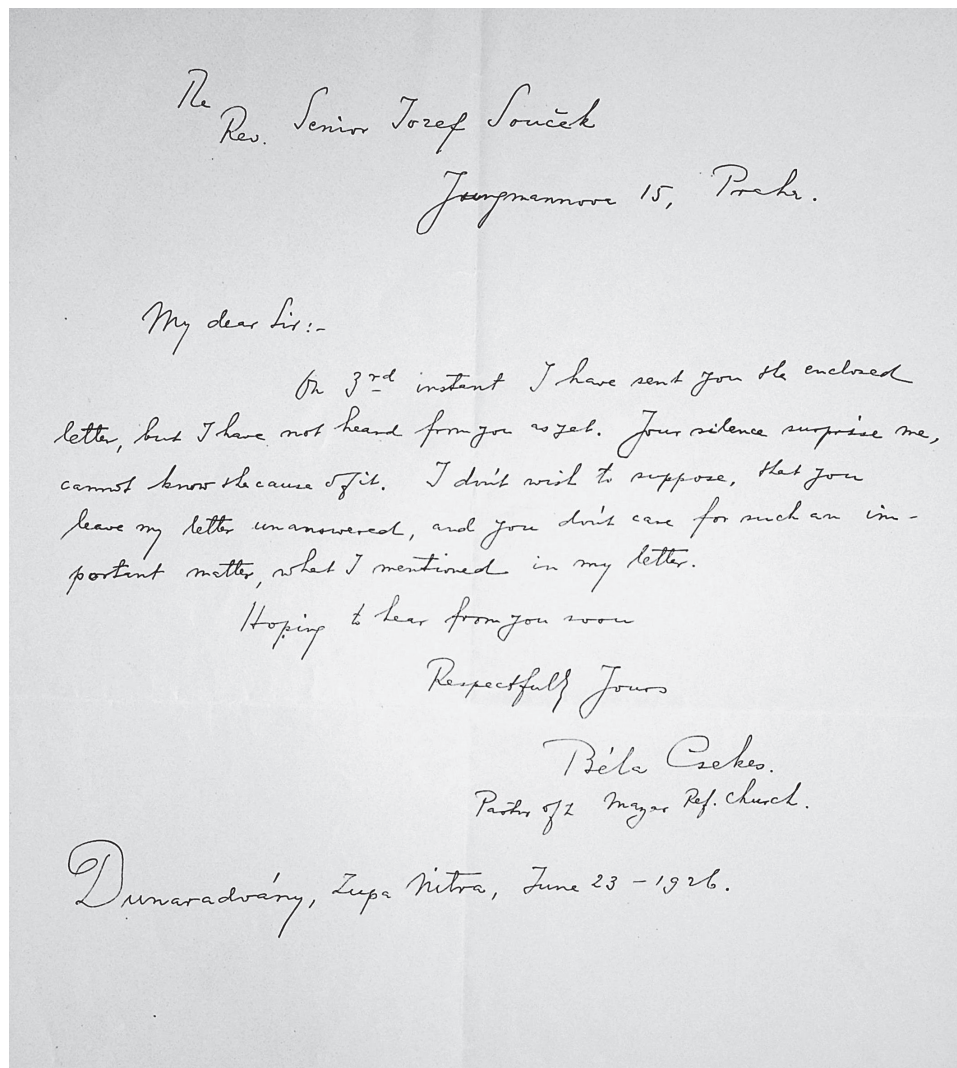 The
Rev. Senior Jozef Souček
Jungmannova 15, Praha.
My dear Sir:-
On 3rd instant I have sent you the enclosed
letter, but I have not heard from you as yet. Your silence surprise me,
cannot know the cause of it. I don't wish to suppose, that you
leave my letter unanswered, and you don't care for such an im-
portant matter, what I mentioned in my letter.
Hoping to hear from you soon
Respectfully Yours
Béla Csekes.
Pastor of Magyar Ref. Church.
Dunaradvány, Zupa Nitra, June 23 - 1926.